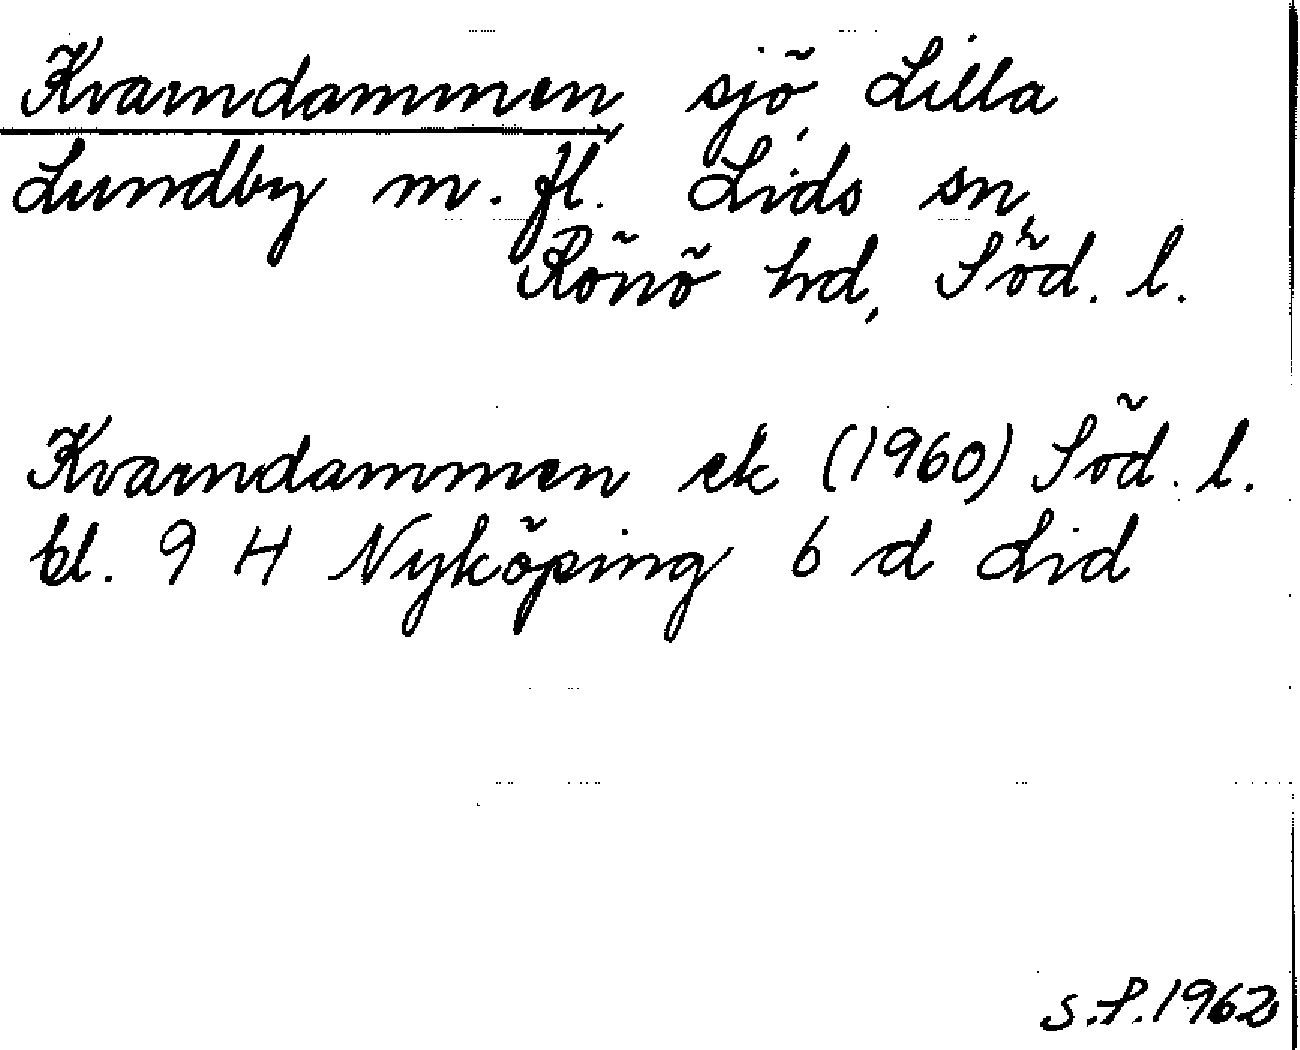 Kvarndammen, sjö, Lilla
Lundby m. fl. Lids sn,
Rönö hd, Söd. l.
Kvarndammen ek (1960) Söd. l.
bl. 9 H Nyköping 6 d Lid
S.P. 1962